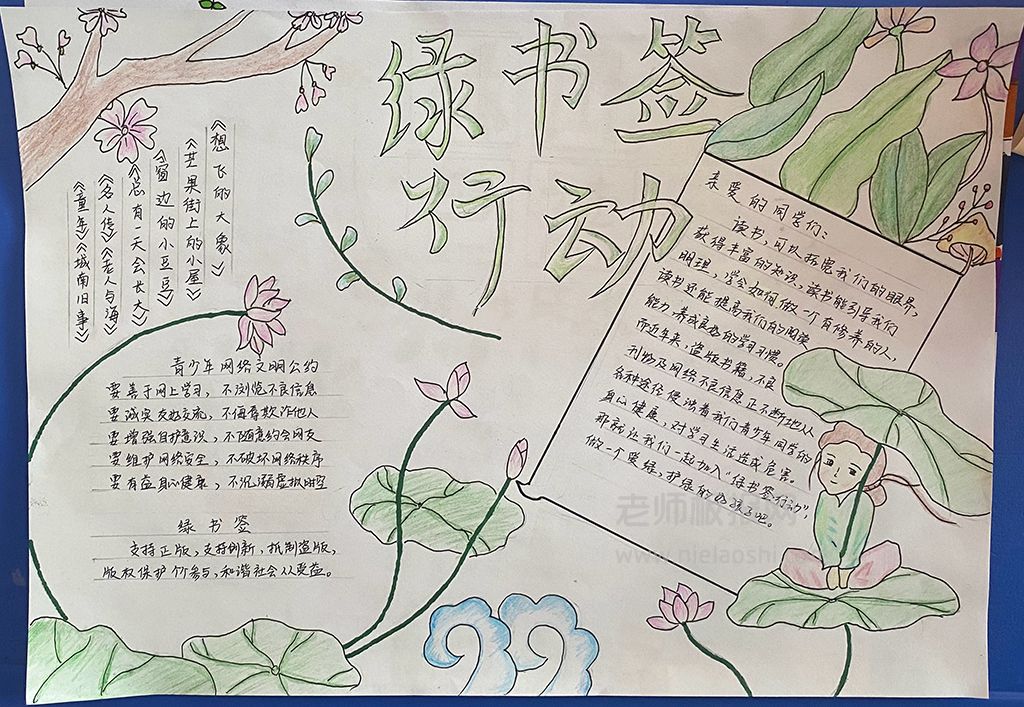 绿书签
行动
《想飞的大象》
《芒果街上的小屋》
《窗边的小豆豆》
《总有一天会长大》
《名人传》《老人与海》
《童年》《城南旧事》
青少年网络文明公约
要善于网上学习，不浏览不良信息
要诚实友好交流，不侮辱欺诈他人
要增强自护意识，不随意约会网友
要维护网络安全，不破坏网络秩序
要有益身心健康，不沉溺虚拟时空
绿书签
支持正版，支持创新，抵制盗版，
版权保护个个参与，和谐社会人人受益。
亲爱的同学们：
读书，可以拓宽我们的眼界，
获得丰富的知识，读书能引导我们
明理，学会如何做一个有修养的人，
读书还能提高我们有的阅读
能力，养成良好的学习习惯。
而近年来，盗版书籍，不良
刊物及网络不良信息正不断地从
各种途径侵蚀着我们青少年同学的
身心健康，对学习生活造成危害。
那就让我们一起加入“绿书签行动”，
做一个爱绿，护绿的好孩子吧。
老师板报网